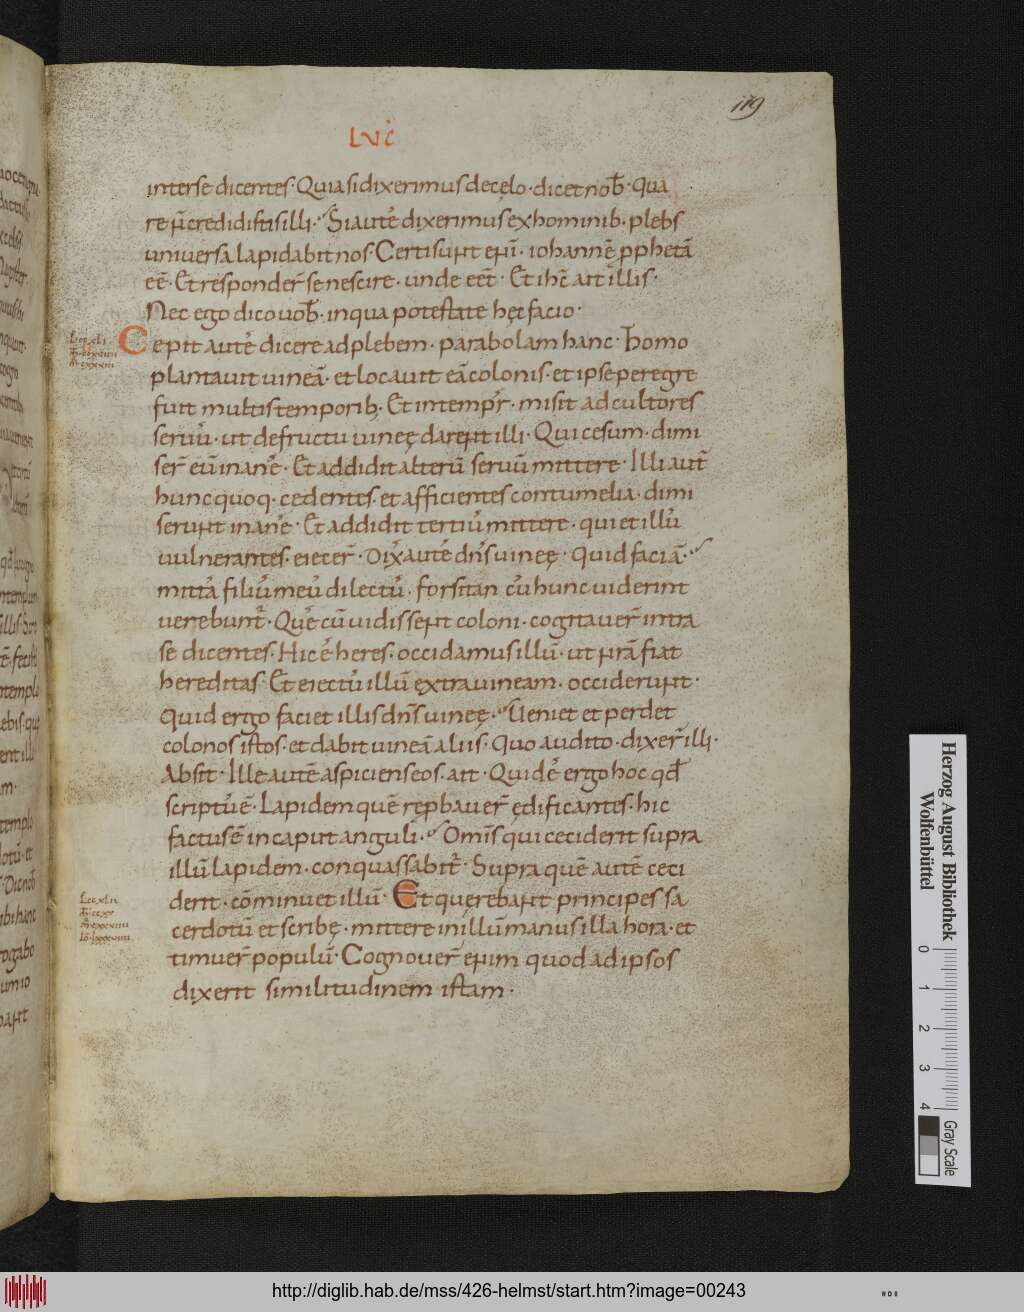 119
LUC
inter se dicentes· Quia si dixerimus de cęlo· dicet nob̄· qua
re n̄ credidistis illi·· Si autē dixerimus ex hominib· plebs
universa lapidabit nos· Certi sunt eni̅· iohannē pphetā
eē· Et responder̄ se nescire· unde eēt· Et ihc̄ ait illis·
Nec ego dico uob̄· in qua potestate hęc facio·
Cepit autē dicere ad plebem· parabolam hanc· homo
plantauit uineā· et locauit eā colonis· et ipse peregre
fuit multis temporib;· Et in tempr̄· misit ad cultores
seruū· ut de fructu uineę darent illi· Qui cesum· dimi
ser̄ eū inanē· Et addidit alterū seruū mittere· Illi aut̄
hunc quoq· cedentes· et afficientes contumelia· dimi
serunt inanē· Et addidit tertiū mittere· qui et illū
uulnerantes· eiecer̄· Dix̄ autē dn̄s uineę· Quid faciā··
mittā filiū meū dilectū· forsitan cū hunc uiderint
uerebunt̄· Quē cū uidissent coloni· cogitauer̄ intra
se dicentes· Hic ē heres· occidamus illū· ut nrā fiat
hereditas· Et eiectū illū extra uineam· occiderunt·
Quid ergo faciet illis dn̄s uineę·· Ueniet et perdet
colonos istos· et dabit uineā aliis· Quo audito· dixer̄ illi·
Absit· Ille autē aspiciens eos· ait· Quid ē ergo hoc qd̄
scriptū ē· Lapidem quē repbauer̄ ędificantes· hic
factus ē in caput anguli·· Omīs qui ceciderit supra
illū lapidem· conquassabit̄· Supra quē autē ceci
derit· cōminuet illū· Et querebant principes sa
cerdotū et scribę· mittere in illū manus illa hora· et
timuer̄ populū· Cognouer̄ enim quod ad ipsos
dixerit similitudinem istam·
Herzog August Bibliothek
Wolfenbüttel
0 1 2 3 4
Gray Scale
http://diglib.hab.de/mss/426-helmst/start.htm?image=00243